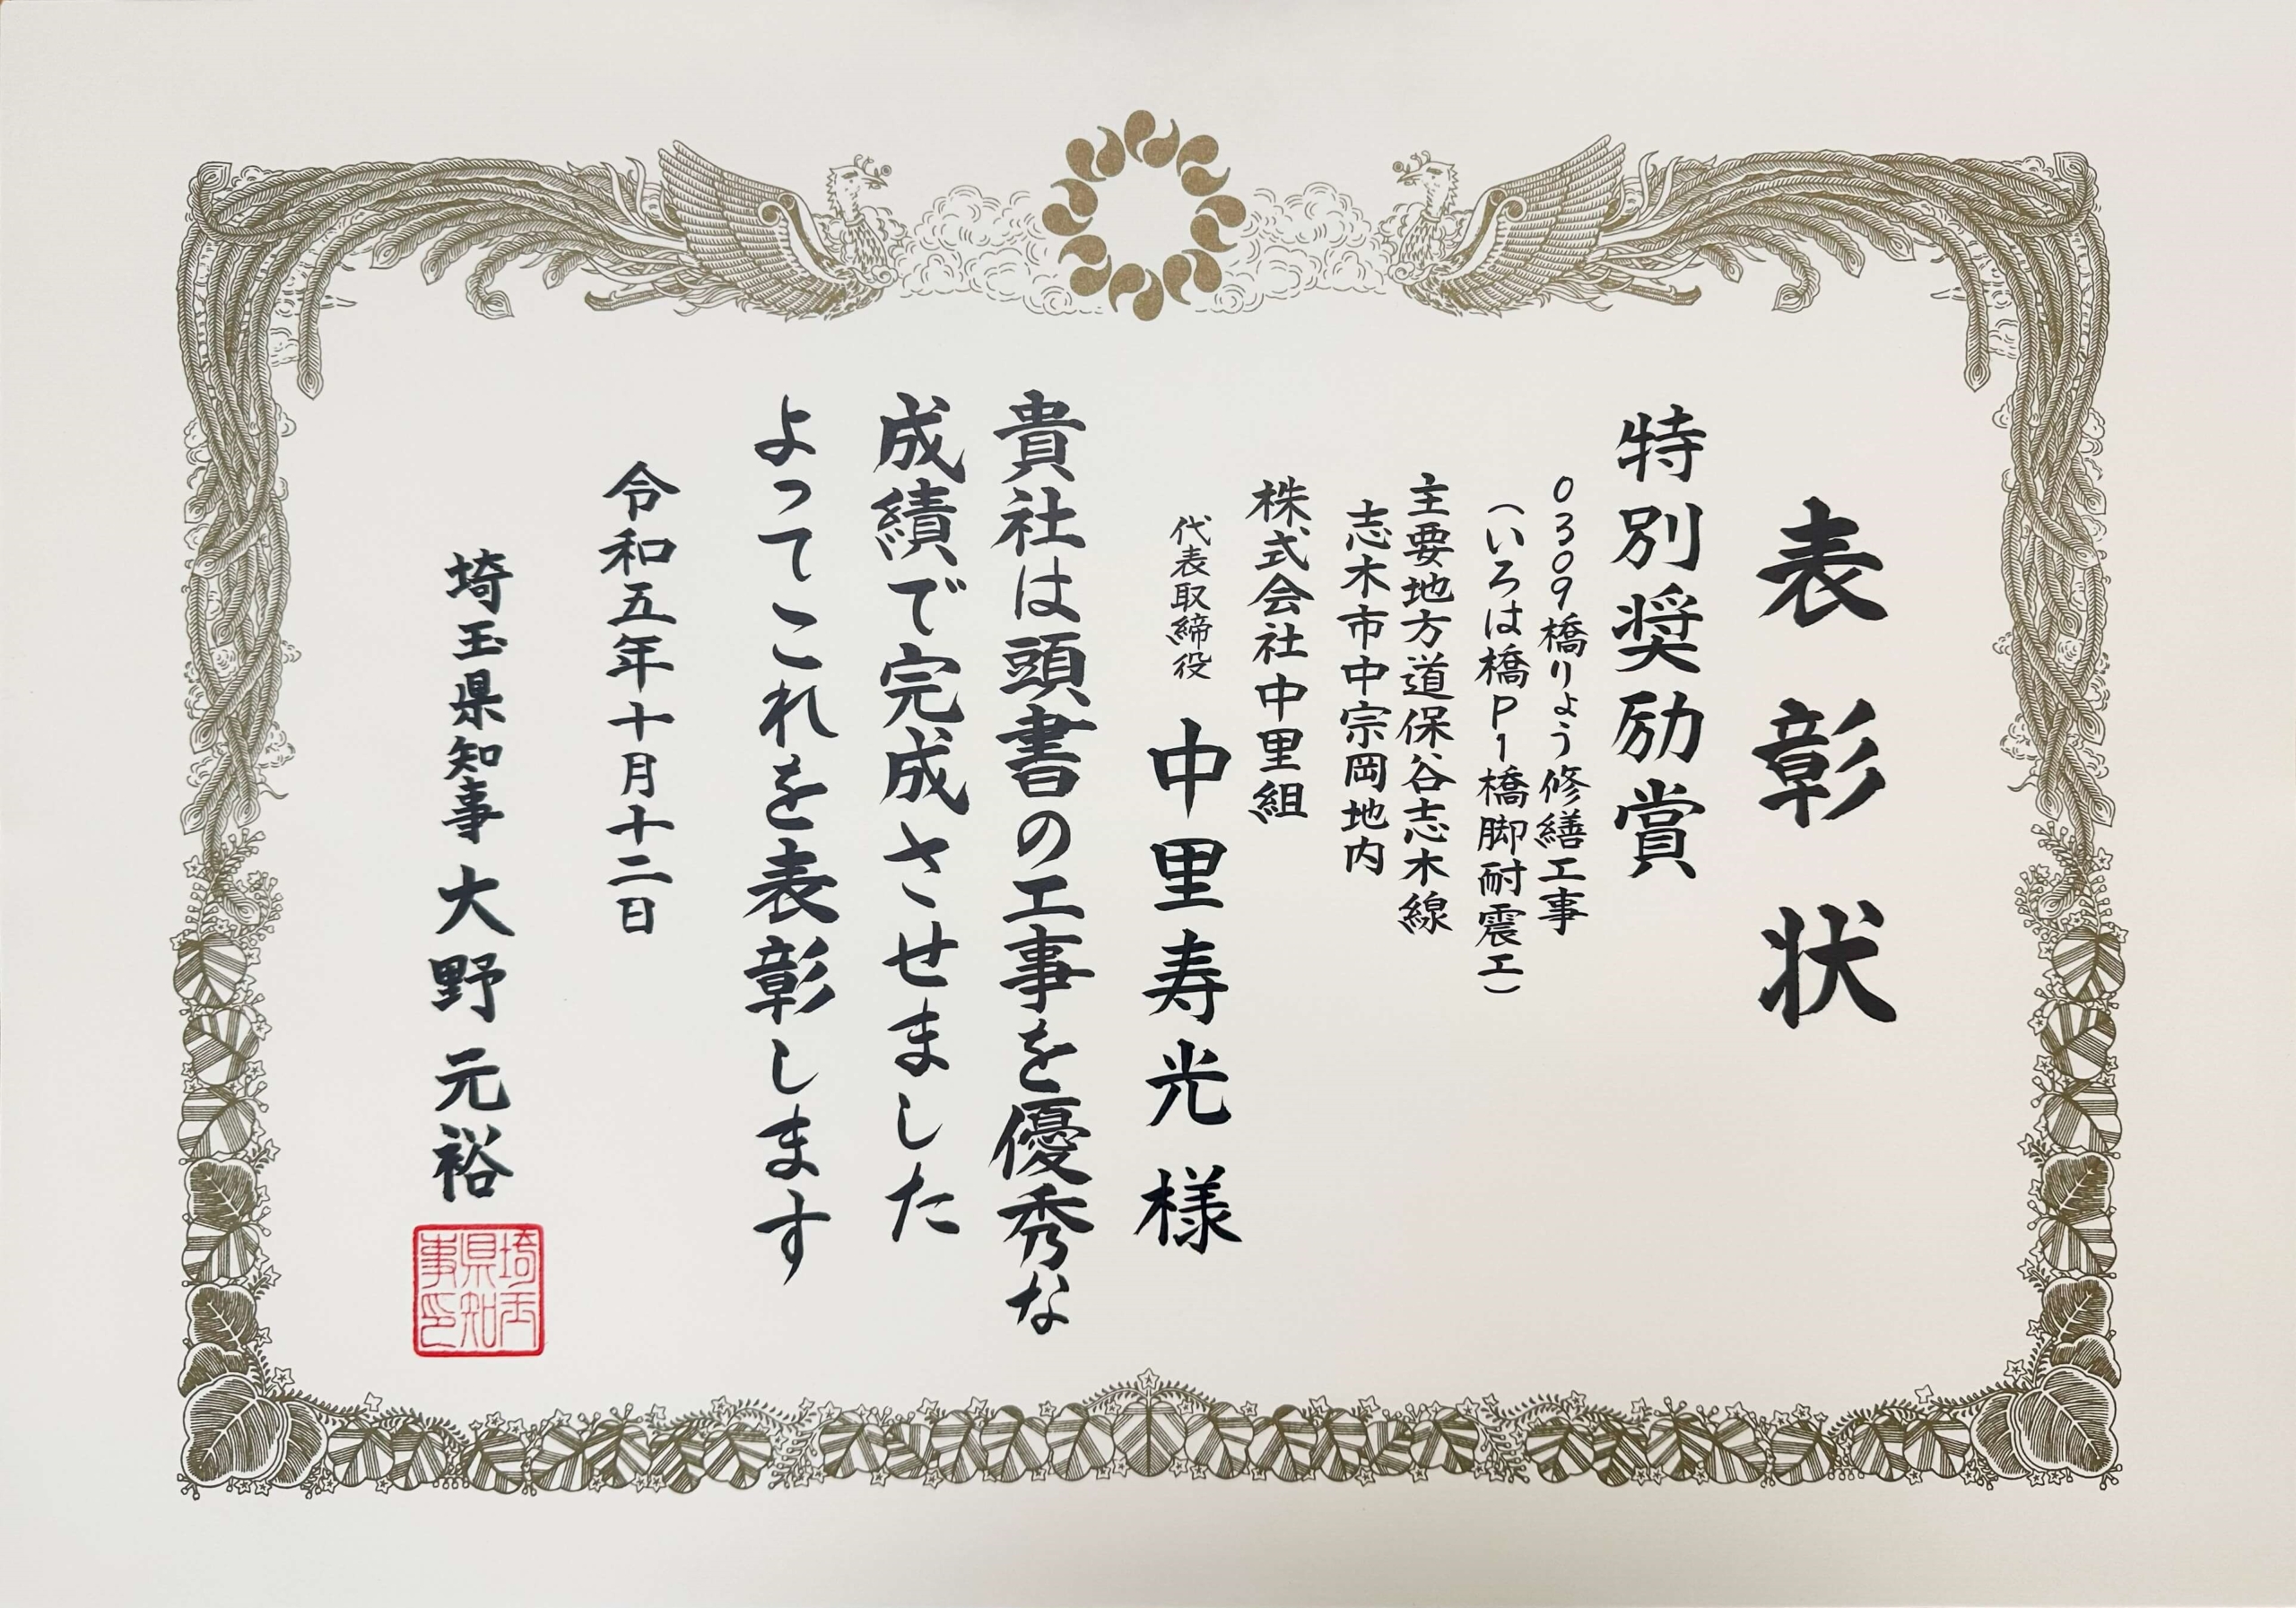 表彰状
特別奨励賞
0309橋りょう修繕工事
(いろは橋P1橋脚耐震工)
主要地方道保谷志木線
志木市中宗岡地内
株式会社中里組
代表取締役 中里寿光様
貴社は頭書の工事を優秀な
成績で完成させました
よってこれを表彰します
令和五年十月十二日
埼玉県知事 大野元裕
埼玉
県知
事印